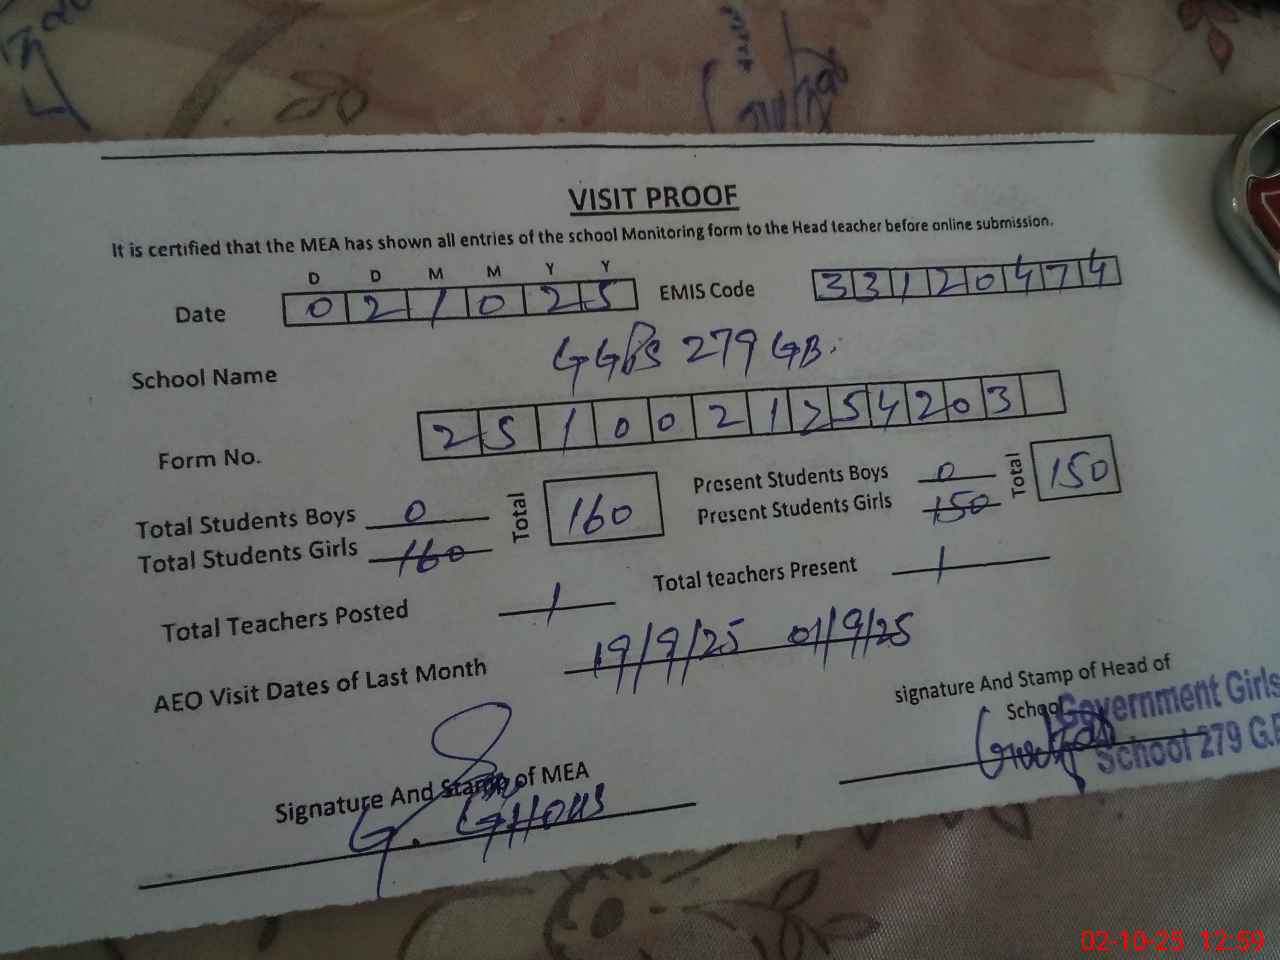 VISIT PROOF
It is certified that the MEA has shown all entries of the school Monitoring form to the Head teacher before online submission.
D D M M Y Y
Date 0 2 1 0 2 5 EMIS Code 3 3 1 2 0 4 7 4
School Name GGPS 279 GB.
Form No. 2 5 1 0 0 2 1 2 5 4 2 0 3
Total Students Boys 0 Total 160 Present Students Boys 0 Total 150
Total Students Girls 160 Present Students Girls 150
Total Teachers Posted 1 Total teachers Present 1
AEO Visit Dates of Last Month 19/9/25 01/9/25
signature And Stamp of Head of
School
Government Girls
School 279 G.B
Signature And Stamp of MEA
G. GHOUS
02-10-25 12:59